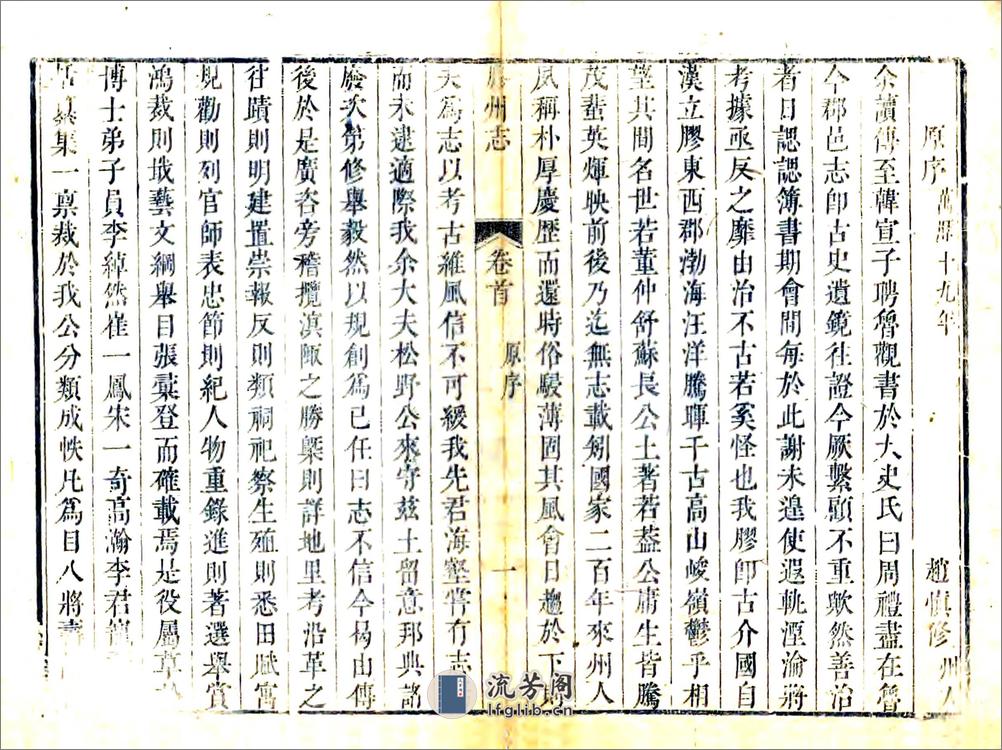 原序 萬曆十九年 趙慎修 州人
余讀傳至韓宣子聘魯觀書於大史氏曰周禮盡在魯
今郡邑志卽古史遺鏡往證今厥繫頭不重歟然善治
者日諰諰簿書期會間每於此謝未遑使遐軌湮淪將
考據亟反之靡由治不古若奚怪也我膠卽古介國自
漢立膠東西郡渤海汪洋騰暉千古高山峻嶺鬱乎相
望其間名世若董仲舒蘇長公土著若葢公庸生皆騰
茂蜚英輝映前後乃迄無志載矧國家二百年來州人
夙稱朴厚慶歷而還時俗駸薄固其風會日趨於下則
膠州志 卷首 原序 一
夫為志以考古維風信不可緩我先君海壑嘗有志
而未逮適際我余大夫松野公來守茲土留意邦典諮
詹次第修舉毅然以規創為己任曰志不信今曷由傳
後於是廣咨旁稽攬滇陬之勝槩則詳地里考沿革之
往蹟則明建置崇報反則類祠祀察生殖則悉田賦寓
規勸則列官師表忠節則紀人物重錄進則著選舉賞
鴻裁則哉藝文綱舉目張彙登而確載焉是役屬草
博士弟子員李綽然崔一鳳宋一奇高瀚李君
集一禀裁於我公分類成帙凡為目八將
流芳阁
lfglib.cn